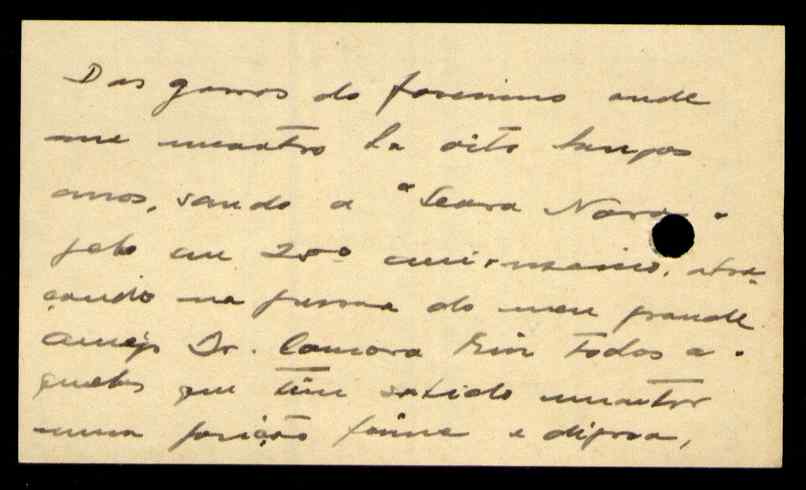 Das garras do fascismo onde
me encontro ha oito longos
anos, saudo a "Seara Nova"
pelo seu 25º aniversario, abra-
çando na pessoa do meu grande
amigo Dr. Camara Reis todos a-
queles que têm sabido manter
uma posição firme e digna,